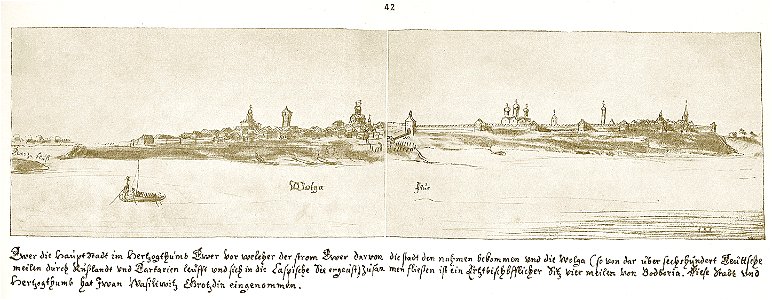 42
Wolga
flus
Twer die Haupt Stadt im Hertzogthumb Twer vor welcher der strom Twer darvon die stadt den nahmen bekommen und die Wolga (so von dar über sechshundert Teütsche
meilen durch Rußlandt und Tartarien leüfft und sich in die Caspische See ergeust) Zusammen fliesten ist ein Ertzbischöfflicher Sitz vier meilen von Diese Stadt und
Hertzogthumb hat Iwan Wasilewitz eingenommen.